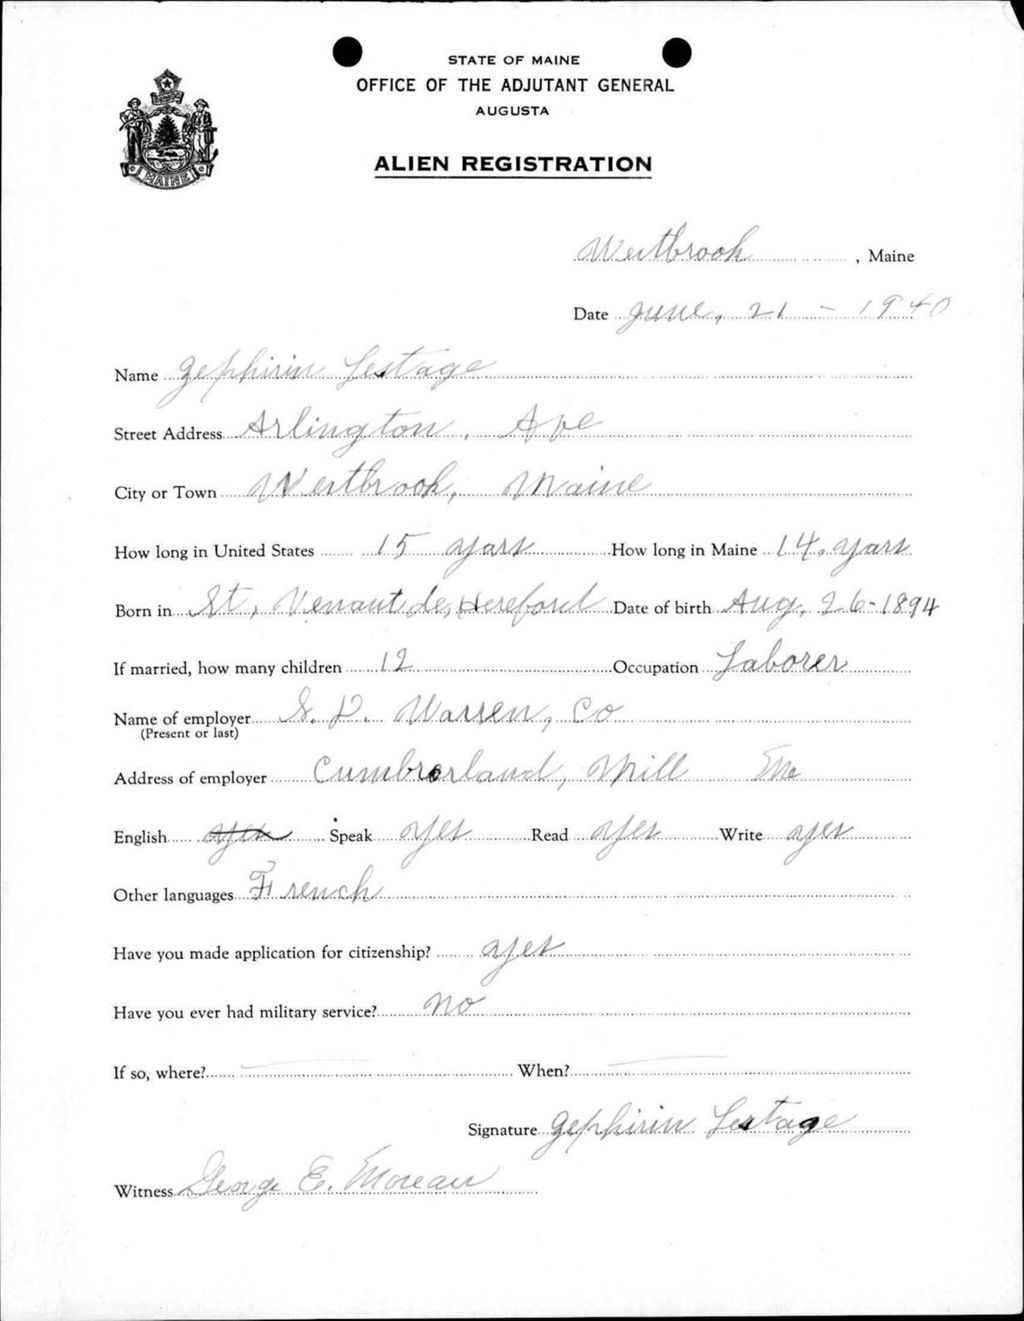 STATE OF MAINE
OFFICE OF THE ADJUTANT GENERAL
AUGUSTA
ALIEN REGISTRATION
MAINE
Westbrook, Maine
Date June, 21 - 1940
Name Zephirin Lestage
Street Address Arlington, Ave
City or Town Westbrook, Maine
How long in United States 15 years How long in Maine 14, years
Born in St, Venant de, Hereford Date of birth Aug, 26-1894
If married, how many children 12 Occupation Laborer
Name of employer S. D. Warren, Co
(Present or last)
Address of employer Cumberland, Mill Me
English yes Speak yes Read yes Write yes
Other languages French
Have you made application for citizenship? yes
Have you ever had military service? no
If so, where? When?
Signature Zephirin Lestage
Witness George E. Moreau